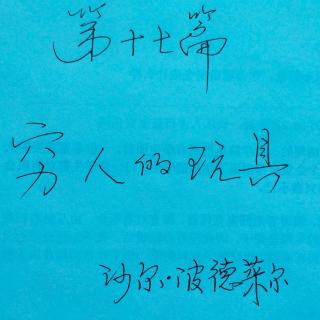 第十七篇
穷人的玩具
沙尔·波德莱尔